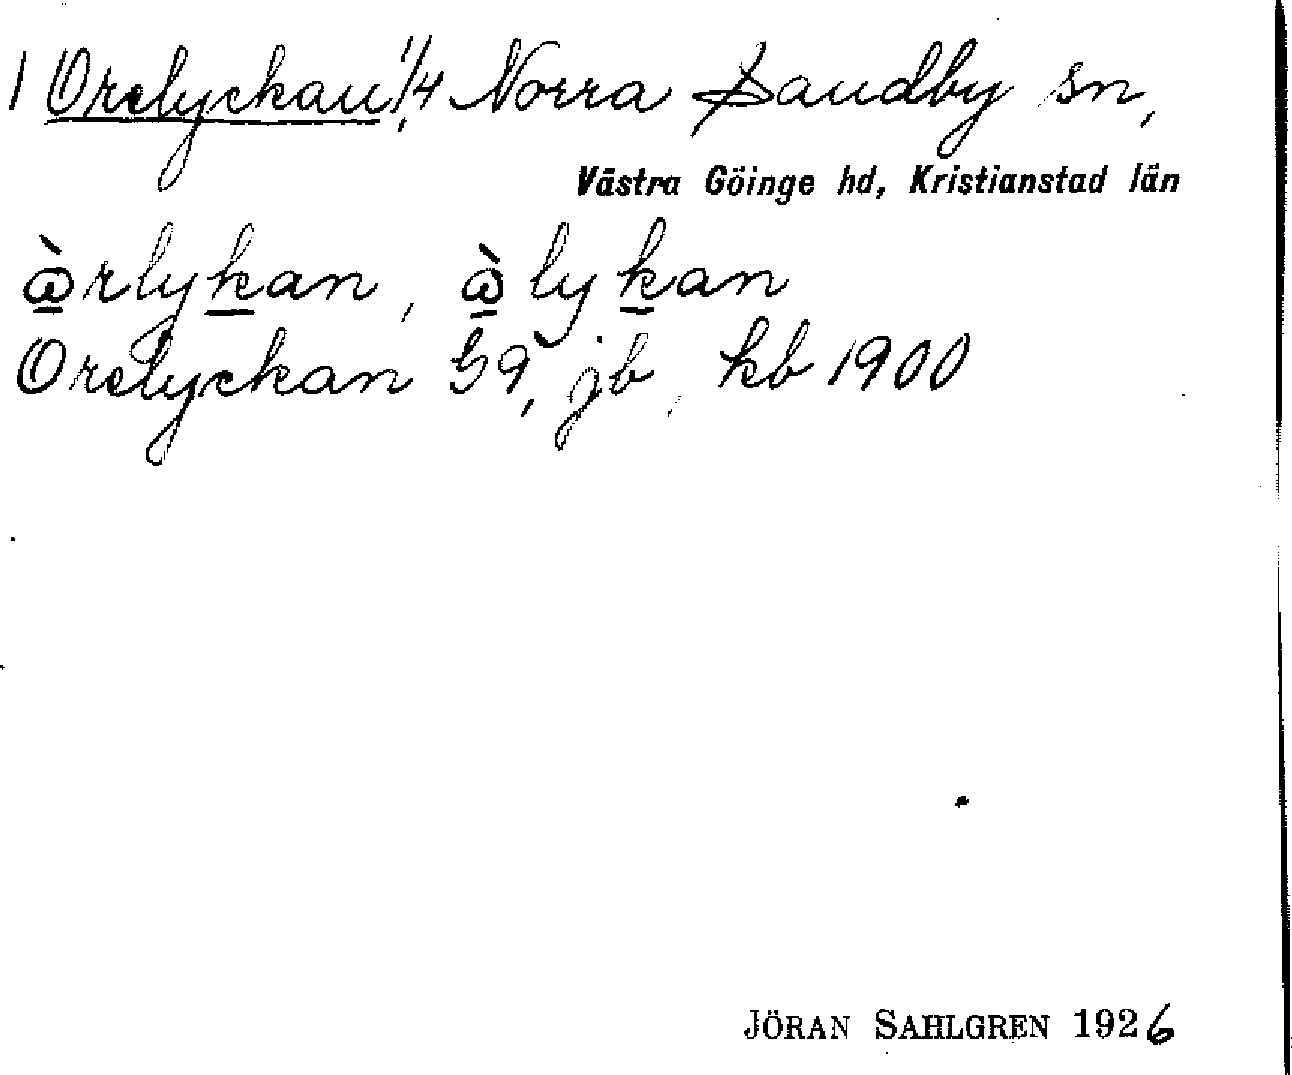 1 Orelyckan 1/4, Norra Sandby sn,
Västra Göinge hd, Kristianstad län
ὼrlykan, ὼlykan
Orelyckan GA, jb, kb 1900
JÖRAN SAHLGREN 1926